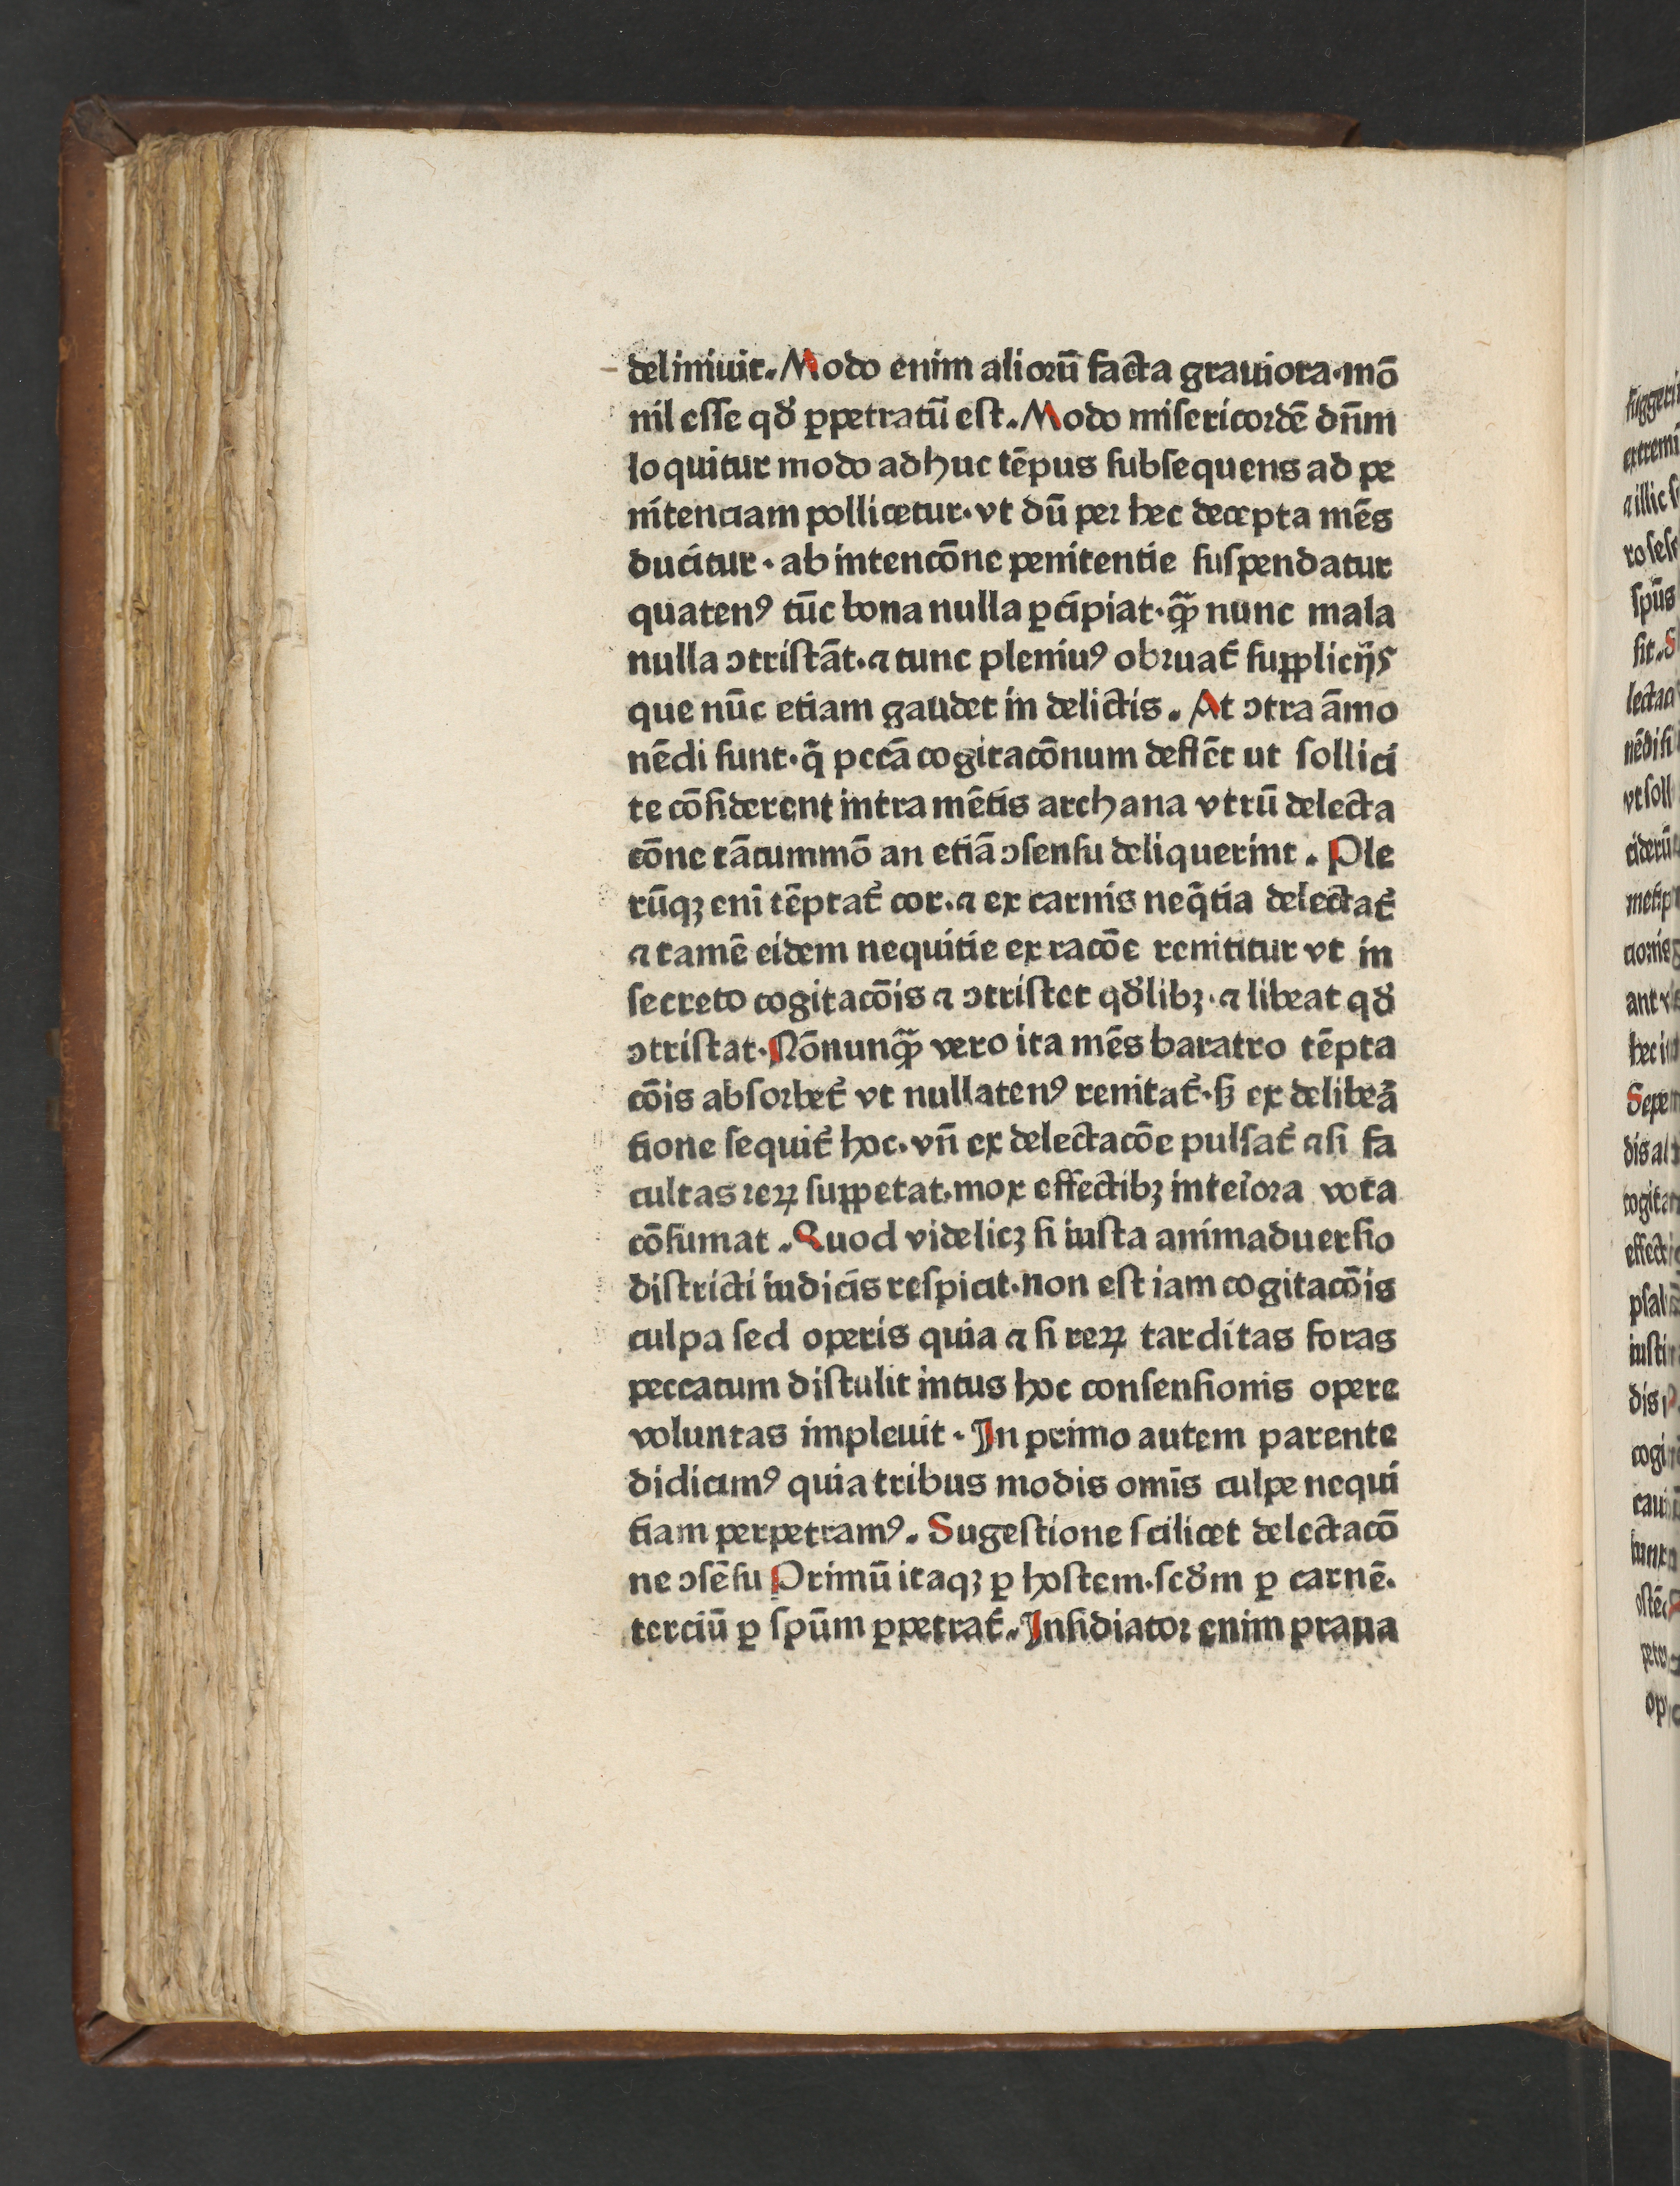 deliniuit. Modo enim aliorū facta grauiora·mō
nil esse qđ ꝑpetratū est. Modo misericordē dn̄m
loquitur modo adhuc tēpus subsequens ad pe
nitenciam pollicetur· vt dū per hec decepta mēs
ducitur · ab intencōne penitentie suspendatur
quatenꝰ tūc bona nulla ꝑcipiat· qꝫ̄ nunc mala
nulla ↄtristāt·⁊ tunc pleniuꝰ obruat᷑ supplicijs
que nūc etiam gaudet in delictis. At ↄtra āmo
nēdi sunt· q̄ pctā cogitacōnum deflēt ut sollici
te cōsiderent intra mētis archana vtrū delecta
cōne tātummō an etiā ↄsensu deliquerint. Ple
rūqꝫ eni tēptat᷑ cor.⁊ ex carnis neq̄tia delectat᷑
⁊ tamē eidem nequitie ex racōe renititur vt in
secreto cogitacōis ⁊ ↄtristet qđlibꝫ·⁊ libeat qđ
ↄtristat· Nōnunqꝫ̄ vero ita mēs baratro tēpta
cōis absorbet᷑ vt nullatenꝰ renitat᷑·sꝫ ex delibeā
tione sequit᷑ hoc·vn̄ ex delectacōe pulsat᷑ ⁊ si fa
cultas reꝝ suppetat·mox effectibꝫ inteīora vota
cōsumat . Quod videlicꝫ si iusta animaduersio
districti iudicis respicit·non est iam cogitacōis
culpa sed operis quia ⁊ si reꝝ tarditas foras
peccatum distulit intus hoc consensionis opere
voluntas impleuit · In primo autem parente
didicimꝰ quia tribus modis omīs culpe nequi
tiam perpetramꝰ. Sugestione scilicet delectacō
ne ↄsēsu Primū itaqꝫ ꝑ hostem·scđm ꝑ carnē.
terciū ꝑ spūm ꝑpetrat᷑. Insidiator enim praua